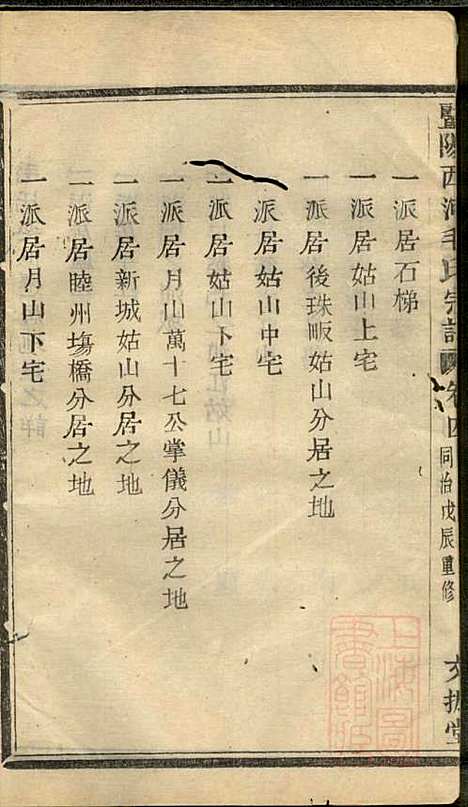 暨陽西河毛氏宗譜 卷四 同治戊辰重修 文抳堂
一派居石梯
一派居姑山上宅
一派居後珠畈姑山分居之地
一派居姑山中宅
一派居姑山下宅
一派居月山萬十七公掌儀分居之地
一派居新城姑山分居之地
一派居睦州塲橋分居之地
一派居月山下宅
上海圖書館藏